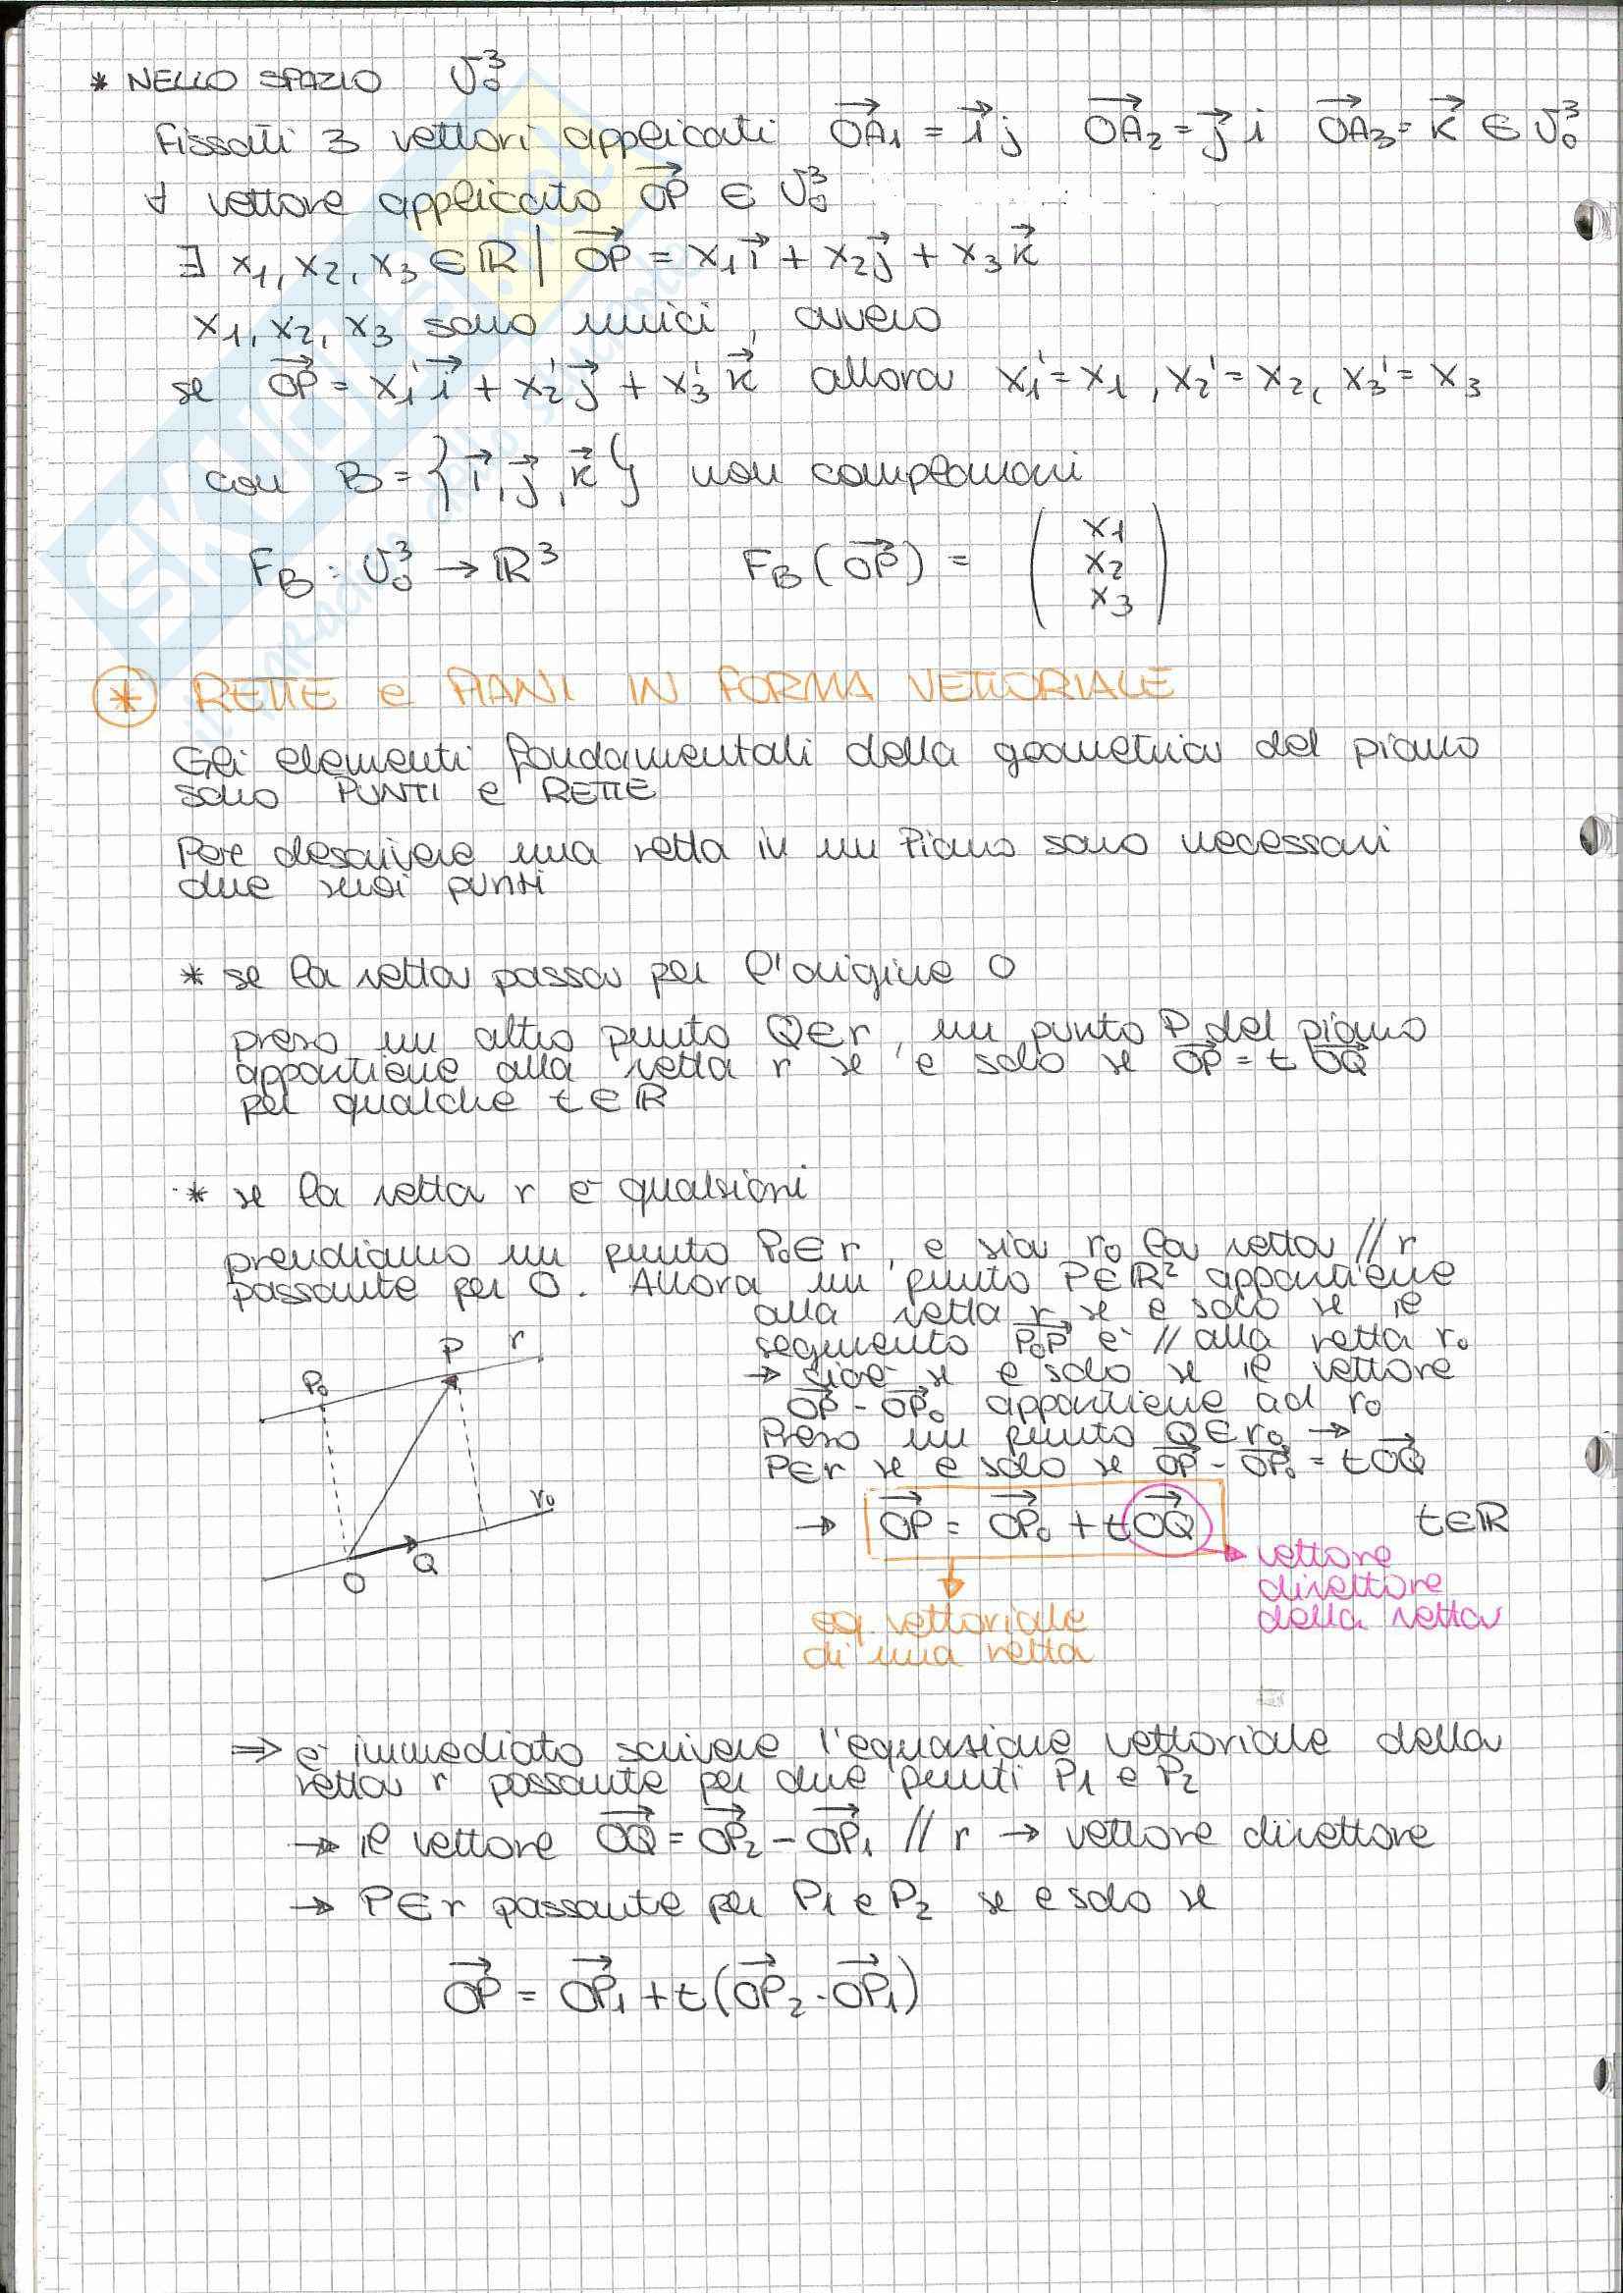 * NELLO SPAZIO V₀³
Fissati 3 vettori applicati OA₁→ = i→ j OA₂→ = j→ i OA₃→ = k→ ∈ V₀³
∀ vettore applicato OP→ ∈ V₀³
∃ x₁, x₂, x₃ ∈ ℝ | OP→ = x₁i→ + x₂j→ + x₃k→
x₁, x₂, x₃ sono unici, ovvero
se OP→ = x₁'i→ + x₂'j→ + x₃'k→ allora x₁' = x₁, x₂' = x₂, x₃' = x₃
con B = {i→, j→, k→} non complanari
F_B : V₀³ → ℝ³ F_B(OP→) = (x₁ x₂ x₃)
* RETTE e PIANI IN FORMA VETTORIALE
Gli elementi fondamentali della geometria del piano
sono PUNTI e RETTE
Per descrivere una retta in un Piano sono necessari
due suoi punti
* se la retta passa per l'origine O
preso un altro punto Q∈r, un punto P del piano
appartiene alla retta r se e solo se OP→ = t OQ→
per qualche t∈ℝ
* se la retta r è qualsiasi
prendiamo un punto P₀∈r, e sia r₀ la retta // r
passante per O. Allora un punto P∈ℝ² appartiene
alla retta r se e solo se il
segmento P₀P→ è // alla retta r₀
→ cioè se e solo se il vettore
OP→ - OP₀→ appartiene ad r₀
Preso un punto Q∈r₀ →
P∈r se e solo se OP→ - OP₀→ = tOQ→
→ OP→ = OP₀→ + tOQ→ t∈ℝ
P₀ P r
r₀
O Q
vettore
direttore
della retta
eq. vettoriale
di una retta
⇒ è immediato scrivere l'equazione vettoriale della
retta r passante per due punti P₁ e P₂
→ il vettore OQ→ = OP₂→ - OP₁→ // r → vettore direttore
→ P∈r passante per P₁ e P₂ se e solo se
OP→ = OP₁→ + t(OP₂→ - OP₁→)